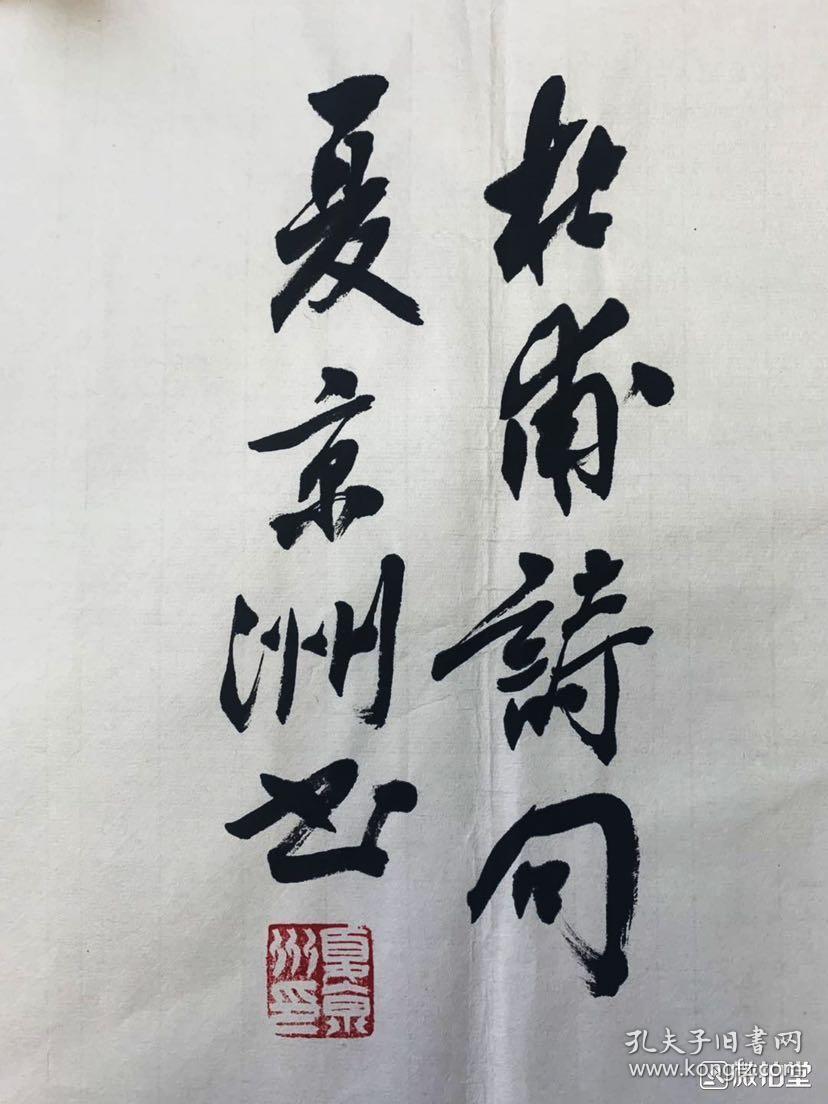 杜甫詩句
夏京洲书
夏京
州印
孔夫子旧书网
www.kongfz.com
微拍堂